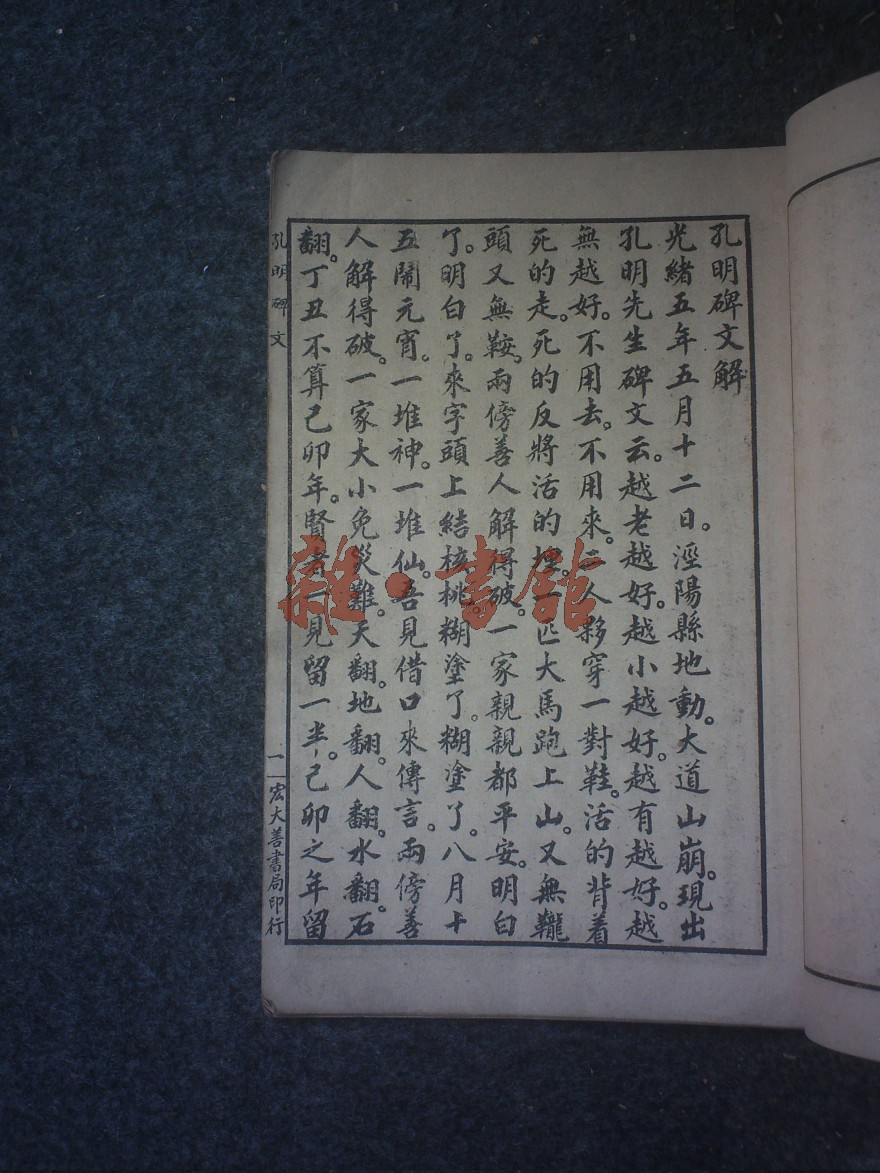 孔明碑文解
光緒五年五月十二日。涇陽縣地動。大道山崩。現出
孔明先生碑文云。越老越好。越小越好。越有越好。越
無越好。不用去。不用來。二人夥穿一對鞋。活的背着
死的走。死的反將活的埋。一匹大馬跑上山。又無韁
頭又無鞍。兩傍善人解得破。一家親親都平安。明白
了。明白了。來字頭上結核桃。糊塗了。糊塗了。八月十
五鬧元宵。一堆神。一堆仙。吾見借口來傳言。兩傍善
人解得破。一家大小免災難。天翻。地翻。人翻。水翻。石
翻。丁丑不算己卯年。賢者一見留一半。己卯之年留
孔明碑文
一
宏大善書局印行
雜·書館